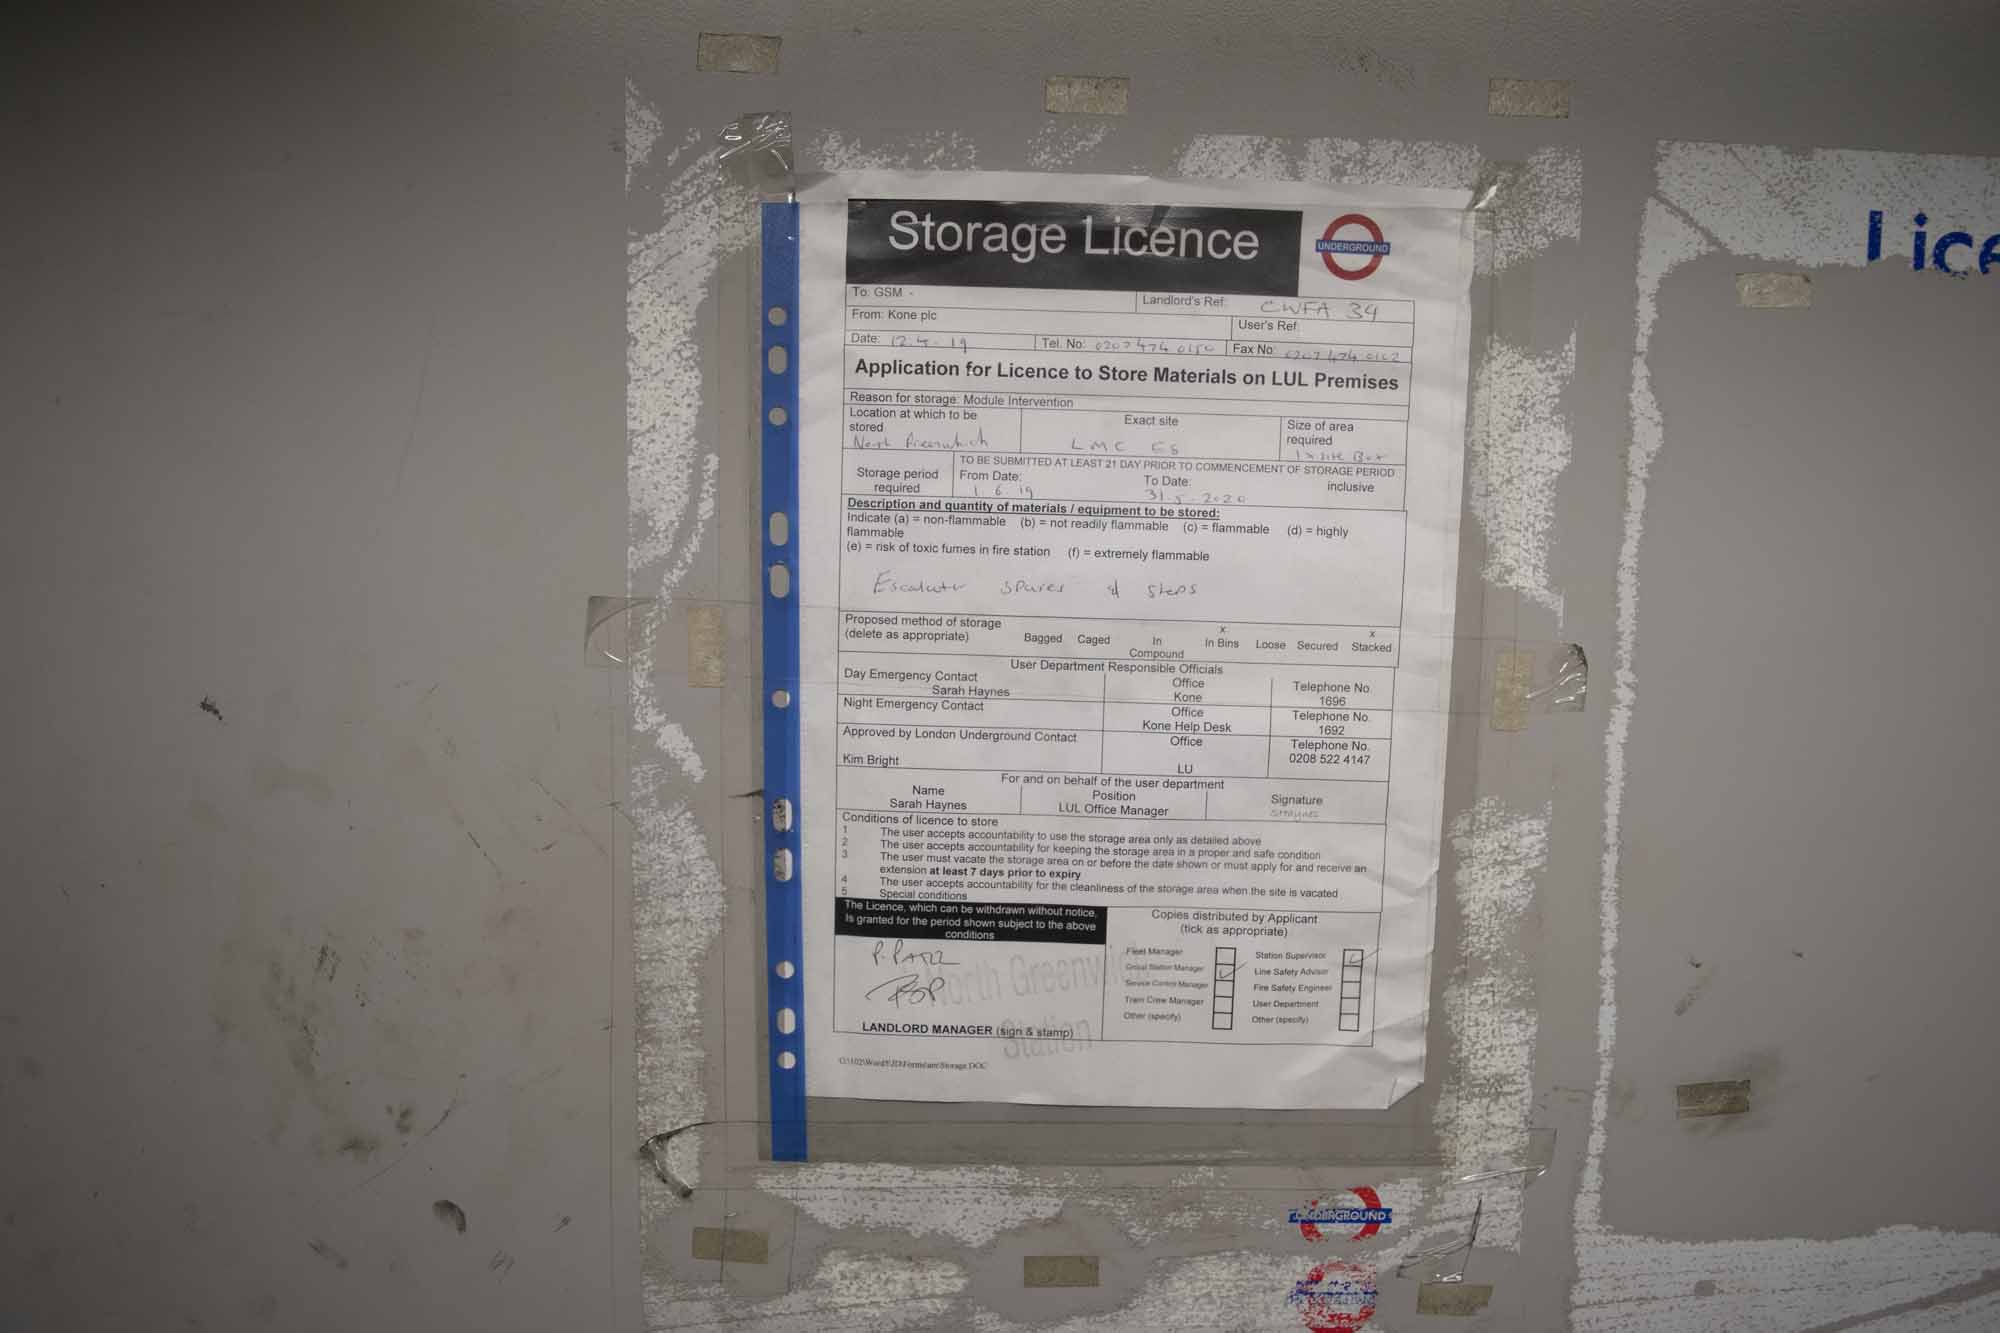 Storage Licence
UNDERGROUND
To: GSM -
Landlord's Ref: CWFA 34
From: Kone plc
User's Ref:
Date: 12.4.19
Tel. No: 0207 474 0150
Fax No: 0207 474 0162
Application for Licence to Store Materials on LUL Premises
Reason for storage: Module Intervention
Location at which to be
stored
North Greenwich
Exact site
LMC E5
Size of area
required
1 x site Box
Storage period
required
TO BE SUBMITTED AT LEAST 21 DAY PRIOR TO COMMENCEMENT OF STORAGE PERIOD
From Date:
1.6.19
To Date:
31.5.2020
inclusive
Description and quantity of materials / equipment to be stored:
Indicate (a) = non-flammable (b) = not readily flammable (c) = flammable (d) = highly
flammable
(e) = risk of toxic fumes in fire station (f) = extremely flammable
Escalator spares & steps
Proposed method of storage
(delete as appropriate)
Bagged Caged In Compound x In Bins Loose Secured x Stacked
User Department Responsible Officials
Day Emergency Contact
Sarah Haynes
Office
Kone
Telephone No.
1696
Night Emergency Contact
Office
Kone Help Desk
Telephone No.
1692
Approved by London Underground Contact
Kim Bright
Office
LU
Telephone No.
0208 522 4147
For and on behalf of the user department
Name
Sarah Haynes
Position
LUL Office Manager
Signature
SHaynes
Conditions of licence to store
1 The user accepts accountability to use the storage area only as detailed above
2 The user accepts accountability for keeping the storage area in a proper and safe condition
3 The user must vacate the storage area on or before the date shown or must apply for and receive an
extension at least 7 days prior to expiry
4 The user accepts accountability for the cleanliness of the storage area when the site is vacated
5 Special conditions
The Licence, which can be withdrawn without notice,
Is granted for the period shown subject to the above
conditions
North Greenwich
Station
LANDLORD MANAGER (sign & stamp)
Copies distributed by Applicant
(tick as appropriate)
Fleet Manager
Group Station Manager
Service Control Manager
Train Crew Manager
Other (specify)
Station Supervisor
Line Safety Advisor
Fire Safety Engineer
User Department
Other (specify)
Lice
UNDERGROUND